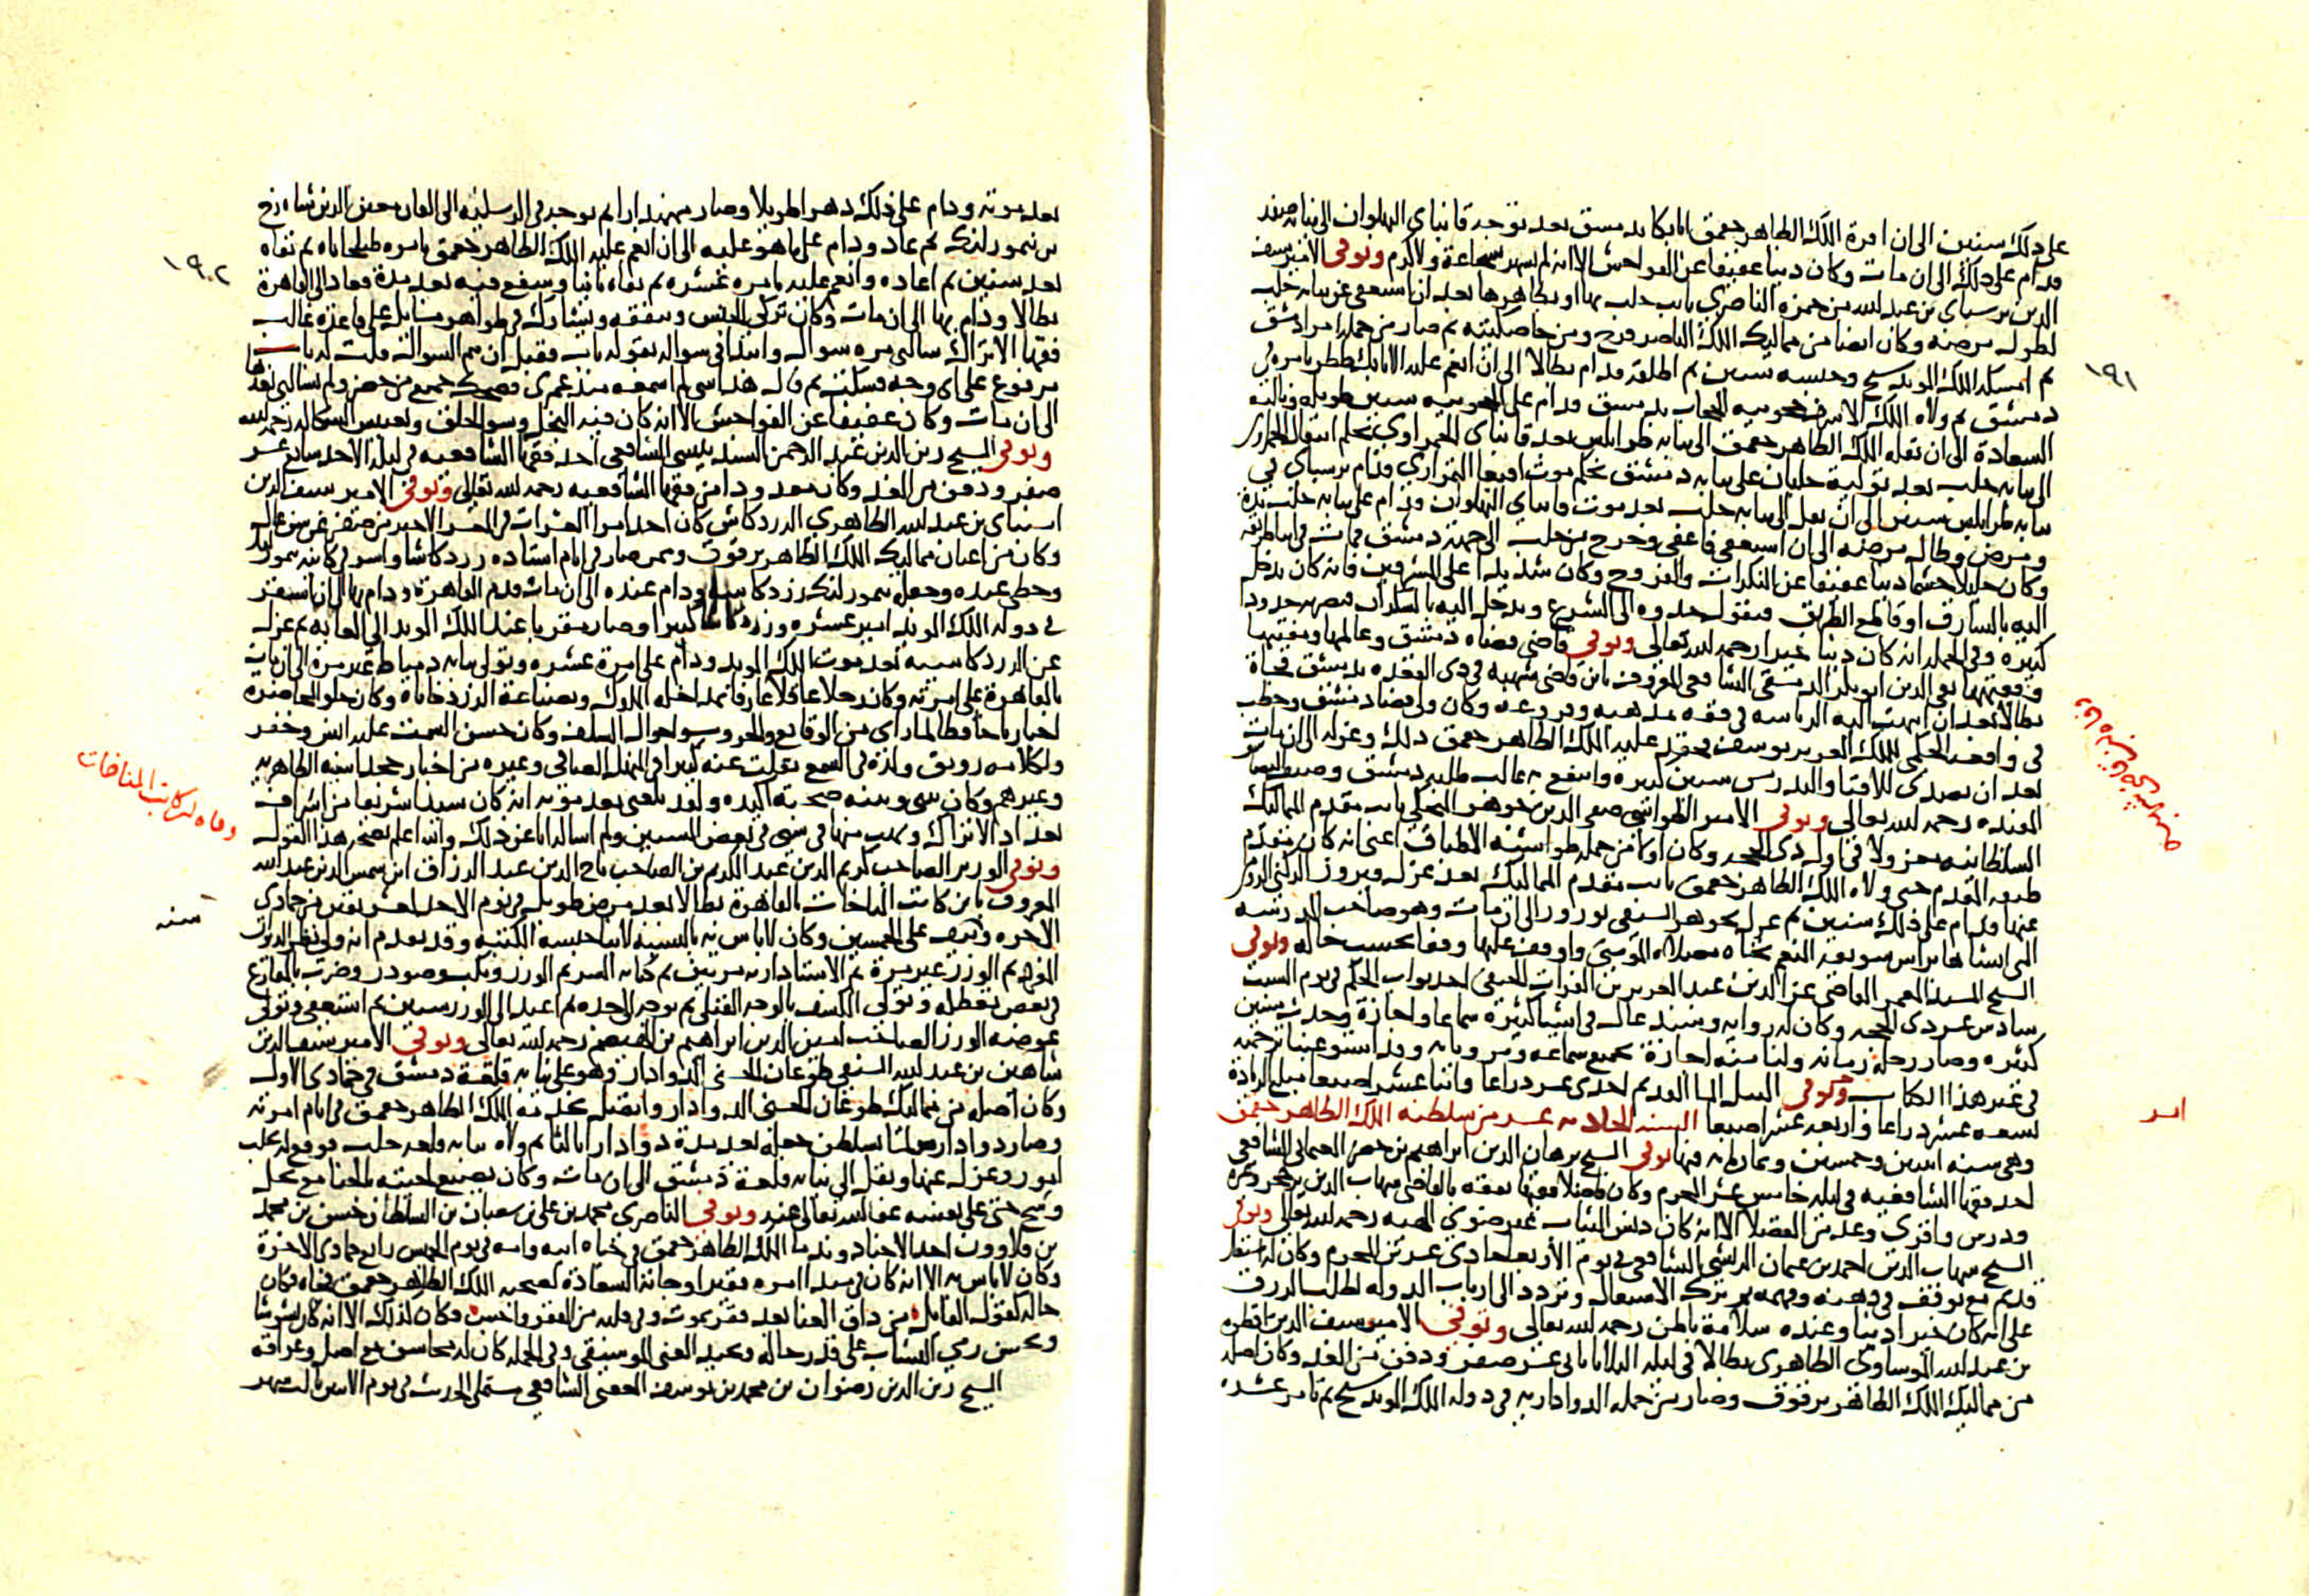 على ذلك سنين الى ان امره الملك الظاهر جقمق اتابكا بدمشق بعد توجه قانباى البهلوان الى نيابة صفد
فدام على ذلك الى ان مات وكان دينا عفيفا عن الفواحش الا انه لم يشهر بشجاعة ولا كرم وتوفى الامير سيف
الدين برسباى بن عبد الله من حمزه الناصرى نايب حلب بها او بظاهرها بعد ان استعفى عن نيابة حلب
لطول مرضه وكان ايضا من مماليك الملك الناصر فرج ومن خاصكيته ثم صار من جملة امرا دمشق
ثم امسكه الملك المويد شيخ وحبسه سنين ثم اطلقه فدام بطالا الى ان انعم عليه الاتابك ططر بامره فى
دمشق ثم ولاه الملك الاشرف حجوبيه الحجاب بدمشق فدام على الحجوبيه سنين طويله ونالته
السعادة الى ان نقله الملك الظاهر جقمق الى نيابة طرابلس بعد قانباى الحمزاوى بحكم انتقال الحمزاوى
الى نيابة حلب بعد تولية جلبان على نيابة دمشق بحكم موت اقبغا التمرازى ودام برسباى فى
نيابة طرابلس سنين الى ان نقل الى نيابة حلب بعد موت قانباى البهلوان ودام على نيابة حلب مدة
ومرض وطال مرضه الى ان استعفى فاعفى وخرج من حلب الى جهة دمشق فمات فى
وكان جليلا حشما دينا عفيفا عن المنكرات والفروج وكان شديدا على المسرفين فانه كان يدخل
اليه بالسارق او قاطع الطريق فيقول خذوه الى الشرع ويدخل اليه بالسكران فيضربه حدودا
كثيرة وفى الجملة انه كان دينا خيرا رحمه الله تعالى وتوفى قاضى قضاة دمشق وعالمها ومفتيها
وفقيهها تقى الدين ابو بكر الدمشقى الشافعى المعروف بابن قاضى شهبه فى ذى القعده بدمشق فجاة
بطالا بعد ان انتهت اليه الرياسه فى فقه مذهبه وفروعه وكان ولى قضا دمشق وخطب
فى واقعه الجكمى للملك العزيز يوسف فحقد عليه الملك الظاهر جقمق ذلك وعزله الى ان مات
بعد ان تصدى للافتا والتدريس سنين كثيره وانتفع به غالب طلبه دمشق وصنف
المفيده رحمه الله تعالى وتوفى الامير الطواشى صفى الدين جوهر المنجكى نايب مقدم المماليك
السلطانيه معزولا فى اول ذى الحجه وكان اولا من جملة طواشيه الاطباق اعنى انه كان مقدم
طبقه المقدم حتى ولاه الملك الظاهر جقمق نايب مقدم المماليك بعد عزل فيروز الركنى الرومى
عنها فدام على ذلك سنين ثم عزل بجوهر السيفى نوروز الى ان مات وهو صاحب المدرسه
التى انشاها براس سويقه المنعم تجاه مصلاه المومنى واوقف عليها وقفا بحسب حاله وتوفى
الشيخ المسند المعمر القاضى عز الدين عبد الرحيم بن الفرات الحنفى احد نواب الحكم فى يوم السبت
سادس عشر ذى الحجه وكان له رواية وسند عال فى اشيا كثيره سماعا واجازة وحدث سنين
كثيره وصار رحلة زمانه ولنا منه اجازة بجميع سماعه ومرويانه وقد استوعبنا ترجمته
فى غير هذا الكتاب امر النيل الما القديم احدى عشر ذراعا واثنا عشر اصبعا مبلغ الزيادة
تسعه عشر ذراعا واربعه عشر اصبعا السنة الحاديه عشر من سلطنه الملك الظاهر جقمق
وهى سنه اثنين وخمسين وثمانمايه فيها توفى الشيخ برهان الدين ابراهيم بن خضر العثمانى الشافعى
احد فقها الشافعيه فى ليلة خامس عشر المحرم وكان فاضلا فقيها تفقه بالقاضى شهاب الدين بن حجر وغيره
ودرس واقرى وعد من الفضلا الا انه كان دنس الثياب غير ضوى الهيئه رحمه الله تعالى وتوفى
الشيخ شهاب الدين احمد بن عثمان الريشى الشافعى فى يوم الاربعا حادى عشرين المحرم وكان له اشتغال
قديم مع توقف فى ذهنه وفهمه ثم ترك الاشتغال وتردد الى ارباب الدوله لطلب الرزق
على انه كان خيرا دينا وعنده سلامة باطن رحمه الله تعالى وتوفى الامير سيف الدين تاقطوه
بن عبد الله الموساوى الظاهرى بطالا فى ليلة الثلاثا ثانى عشر صفر ودفن من الغد وكان اصله
من مماليك الملك الظاهر برقوق وصار من جملة الدواداريه فى دولة الملك المويد شيخ ثم تامر عشره
١٩١
امر
بعد موته ودام على ذلك دهرا طويلا وصار مهمندارا ثم توجه فى الرسليه الى القان معين الدين شاه رخ
بن تيمورلنك ثم عاد ودام على ما هو عليه الى ان انعم عليه الملك الظاهر جقمق بامره طبلخاناه ثم نفاه
بعد سنين ثم اعاده وانعم عليه بامره عشره ثم نفاه ثانيا وشفع فيه بعد مدة فعاد الى القاهرة
بطالا ودام بها الى ان مات وكان تركى الجنس ويتفقه ويشارك فى ظواهر مسايل على قاعدة غالب
فقها الاتراك سالنى مره سوال وابتدا فى سواله بقوله باب فقيل ان يتم السوال قلت له باب
مرفوع على اى وجه فسكت ثم قال هذا شى لم اسمعه منذ عمرى فضحك جميع من حضر ولم يسالنى بعدها
الى ان مات وكان عفيفا عن الفواحش الا انه كان فيه البخل وسو الخلق وتعبيس الشكاله رحمه الله
وتوفى الشيخ زين الدين عبد الرحمن السنديسى الشافعى احد فقها الشافعيه فى ليلة الاحد سابع عشر
صفر ودفن من الغد وكان معدودا من فقها الشافعيه رحمه الله تعالى وتوفى الامير سيف الدين
اسنباى بن عبد الله الظاهرى الزردكاش كان احد امرا العشرات فى العشر الاخير من صفر عن سن عال
وكان من اعيان مماليك الملك الظاهر برقوق وممن صار فى ايام استاده زردكاشا واسر فى كاينه تيمورلنك
وحظى عنده وجعله تيمورلنك زردكاشه ودام عنده الى ان مات فقدم القاهرة ودام بها الى ان استقر
فى دولة الملك المويد امير عشره وزردكاشا كبيرا وصار مقربا عند الملك المويد الى الغايه ثم عزل
عن الزردكاشيه بعد موت الملك المويد ودام على امرة عشره وتولى نيابه دمياط غير مرة الى ان مات
بالقاهرة على امرته وكان رجلا عاقلا عارفا بمداخله الملوك وبصناعة الزردخاناة وكان حلو المحاضره
اخباريا حافظا لما راى من الوقايع والحروب واحوال السلف وكان حسن السمت عليه انس وخفر
ولكلامه رونق ولذة فى السمع نقلت عنه كثيرا فى المنهل الصافى وغيره من اخبار خجداشيه الظاهريه
وغيرهم وكان بينى وبينه صحبة اكيده ولقد بلغنى بعد موته انه كان سيدا شريفا من اشراف
بغداد الاتراك وسبب منها فى سبى فى بعض السنين ولم اساله انا عن ذلك والله اعلم بصحه هذا القول
وتوفى الوزير الصاحب كريم الدين عبد الكريم بن الصاحب تاج الدين عبد الرزاق ابن شمس الدين عبد الله
المعروف بابن كاتب المناخات بالقاهرة بطالا بعد مرض طويل فى يوم الاحد العشرين من جمادى
الاخره ونيف على الخمسين وكان لاباس به بالنسبه لابنا جنسه الكتبه وقد تقدم انه ولى نظر الديوان
المفرد ثم الوزر غير مرة ثم الاستاداريه مرتين ثم كتابة السر ثم الوزر ونكب وصودر وضرب بالمقارع
فى بعض تعطله وتولى الكشف بالوجه القبلى ثم توجه الى جده ثم اعيد الى الوزر سنين ثم استعفى وتولى
عوضه الوزر الصاحب امين الدين ابراهيم بن الهيصم رحمه الله تعالى وتوفى الامير سيف الدين
شاهين بن عبد الله السيفى طوغان الحسنى الدوادار وهو على نيابه قلعة دمشق فى جمادى الاولى
وكان اصله من مماليك طوغان الحسنى الدوادار واتصل بخدمة الملك الظاهر جقمق فى ايام امرته
وصار دواداره ولما تسلطن جعله بعد مدة دوادارا ثالثا ثم ولاه نيابه قلعه حلب فوقع له بحلب
امور وعزل عنها ونقل الى نيابه قلعة دمشق الى ان مات وكان يصبغ لحيته بالحنا مع بخل
وشح حتى على نفسه عفا الله تعالى عنه وتوفى الناصرى محمد بن على بن شعبان بن السلطان حسن بن محمد
بن قلاوون احد الاجناد وندما الملك الظاهر جقمق فى حياة ابيه وامه فى يوم الخميس رابع جمادى الاخرة
وكان لاباس به الا انه كان فى مبدا امره فقيرا وجاته السعادة لصحبه الملك الظاهر جقمق فجاه فكان
حاله كقول القايل من ذاق الغنا بعد فقر يموت وفى قلبه من الفقر واجس وكان كذلك الا انه كان بشوشا
ويحسن رمى النشاب على قدر حاله ويجيد الغنى الموسيقى وفى الجملة كان له محاسن مع اصل وعراقه
الشيخ زين الدين رضوان بن محمد بن يوسف العقبى الشافعى مستملى الحديث فى يوم الاثنين ثالث شهر
١٩٢
وفاه ابن كاتب المناخات
سنه